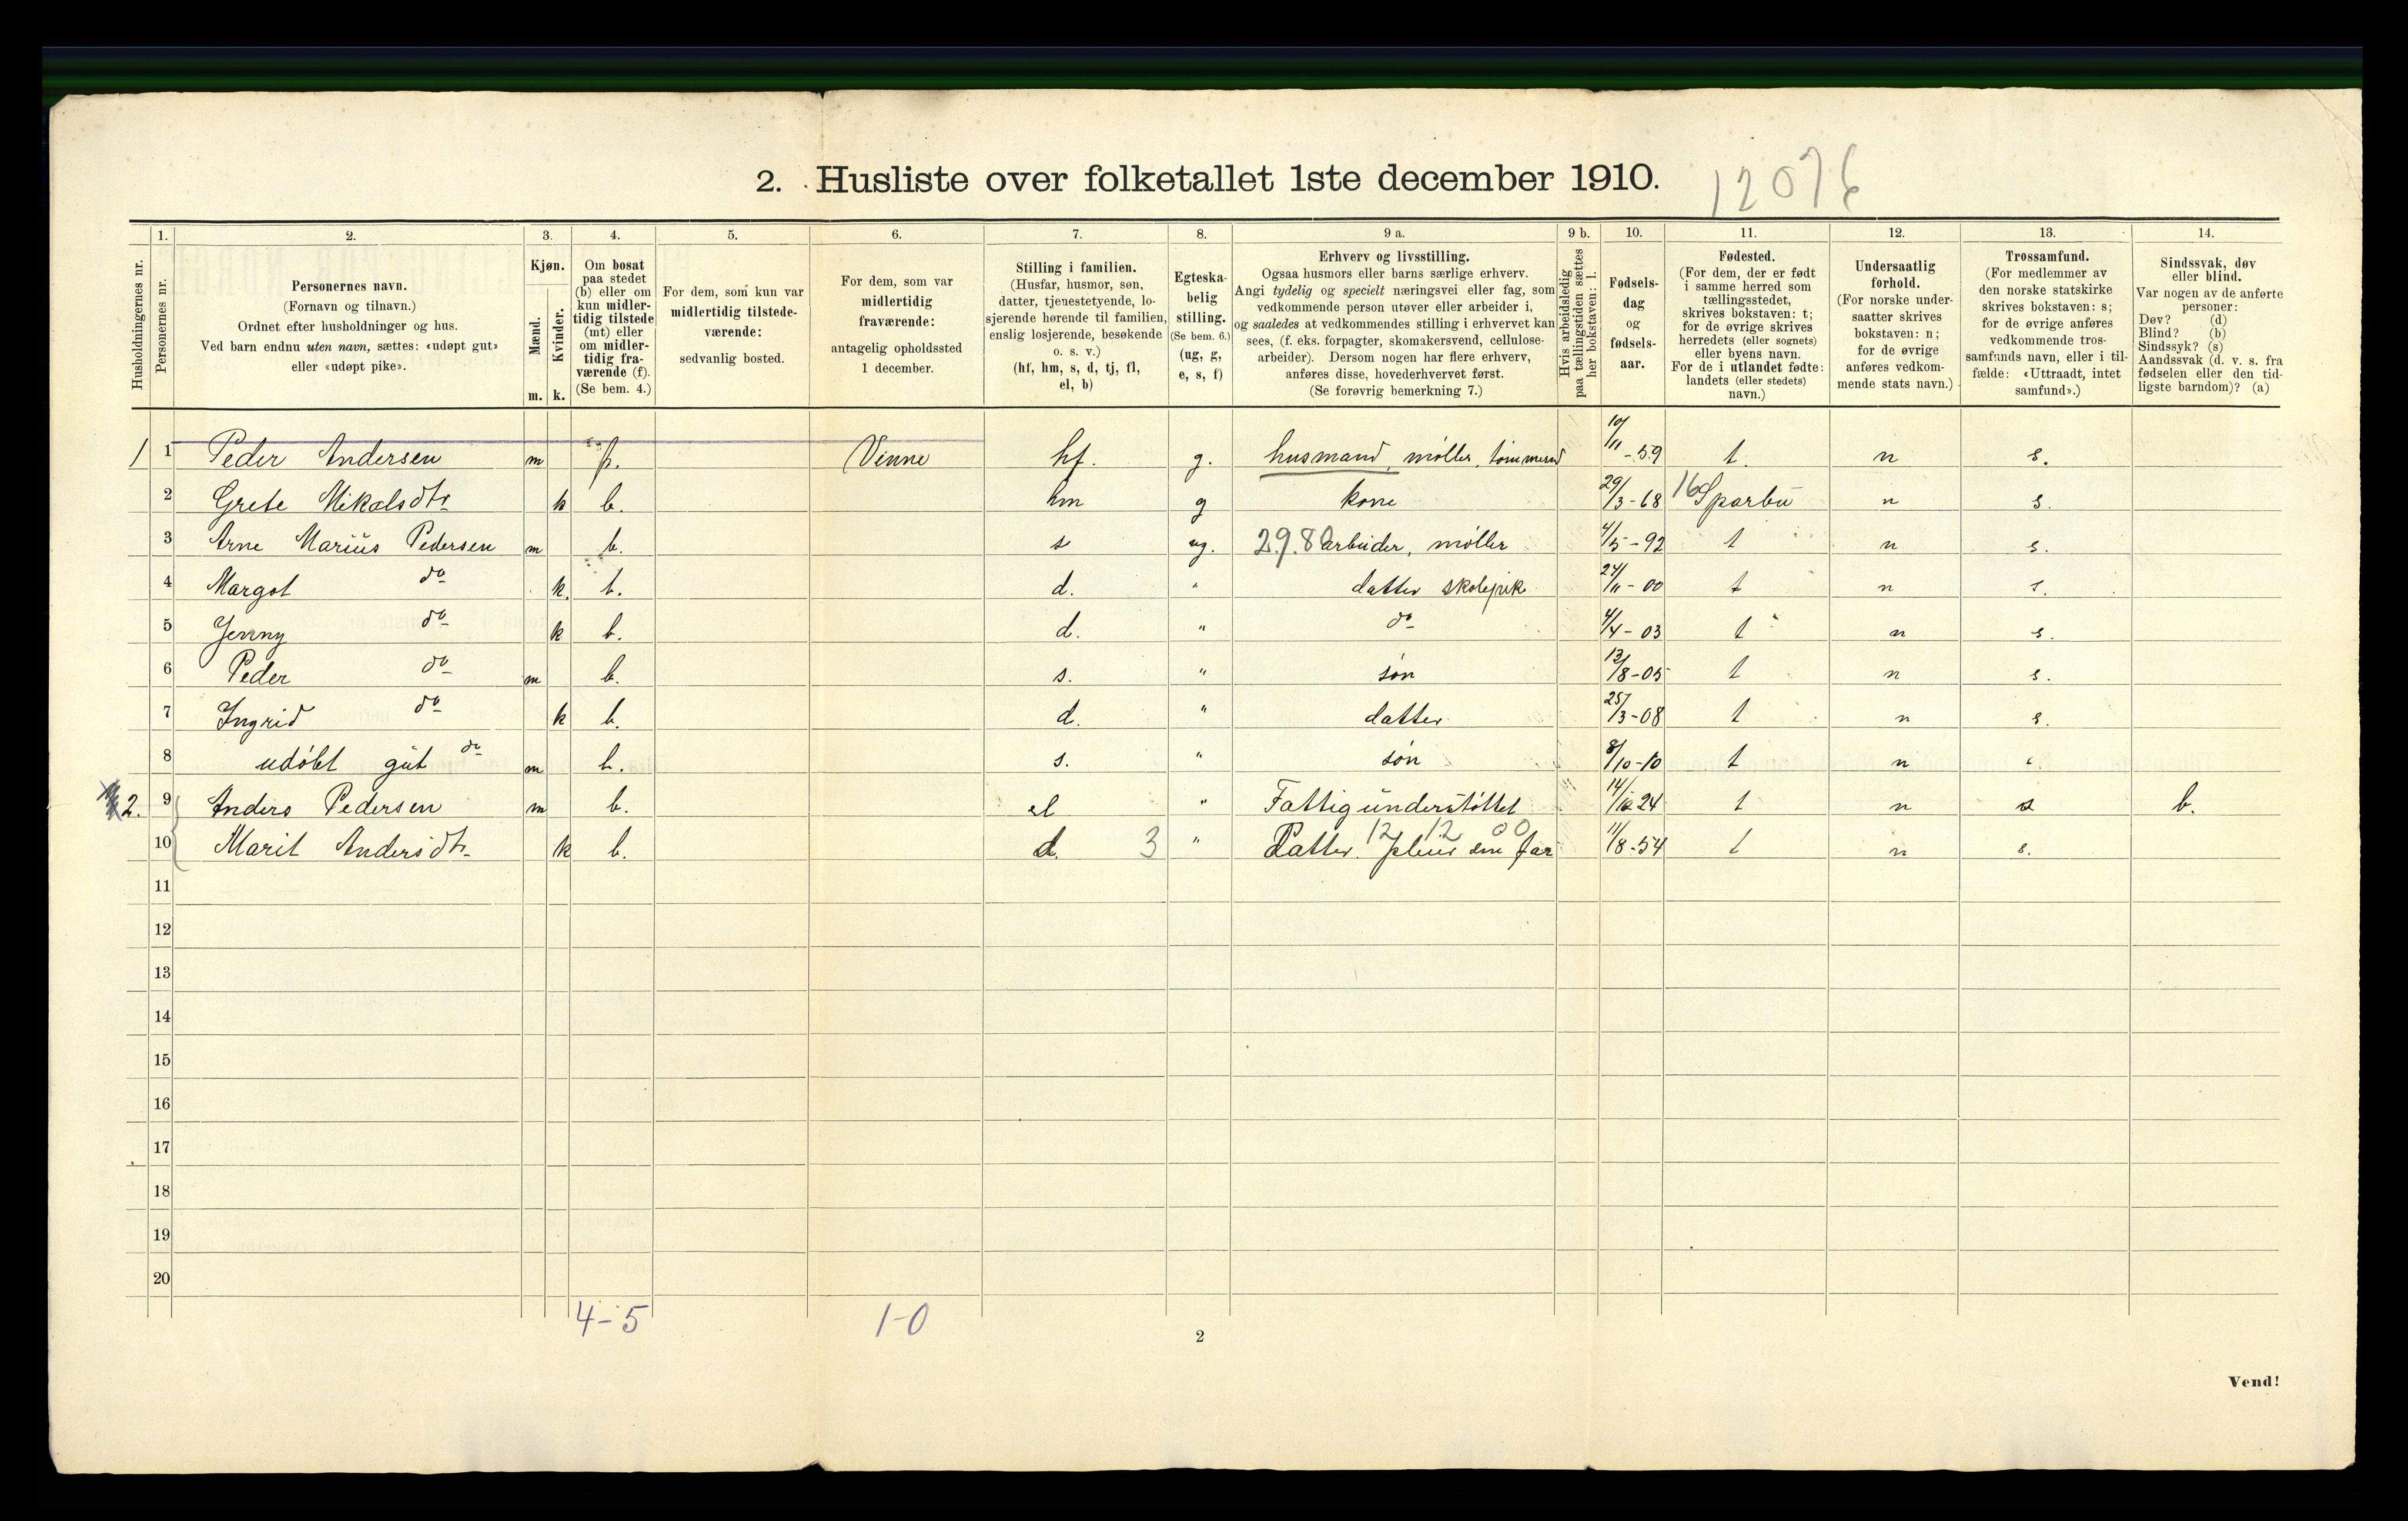 2. Husliste over folketallet 1ste december 1910.
12076
1. 2. 3. 4. 5. 6. 7. 8. 9 a. 9 b. 10. 11. 12. 13. 14.
Husholdningernes nr.
Personernes nr.
Personernes navn.
(Fornavn og tilnavn.)
Ordnet efter husholdninger og hus.
Ved barn endnu uten navn, sættes: «udøpt gut»
eller «udøpt pike».
Kjøn.
Mænd.
Kvinder.
m. k.
Om bosat
paa stedet
(b) eller om
kun midler-
tidig tilstede
(mt) eller
om midler-
tidig fra-
værende (f).
(Se bem. 4.)
For dem, som kun var
midlertidig tilstede-
værende:
sedvanlig bosted.
For dem, som var
midlertidig
fraværende:
antagelig opholdssted
1 december.
Stilling i familien.
(Husfar, husmor, søn,
datter, tjenestetyende, lo-
sjerende hørende til familien,
enslig losjerende, besøkende
o. s. v.)
(hf, hm, s, d, tj, fl,
el, b)
Egteska-
belig
stilling.
(Se bem. 6.)
(ug, g,
e, s, f)
Erhverv og livsstilling.
Ogsaa husmors eller barns særlige erhverv.
Angi tydelig og specielt næringsvei eller fag, som
vedkommende person utøver eller arbeider i,
og saaledes at vedkommendes stilling i erhvervet kan
sees, (f. eks. forpagter, skomakersvend, cellulose-
arbeider). Dersom nogen har flere erhverv,
anføres disse, hovederhvervet først.
(Se forøvrig bemerkning 7.)
Hvis arbeidsledig
paa tællingstiden sættes
her bokstaven: l.
Fødsels-
dag
og
fødsels-
aar.
Fødested.
(For dem, der er født
i samme herred som
tællingsstedet,
skrives bokstaven: t;
for de øvrige skrives
herredets (eller sognets)
eller byens navn.
For de i utlandet fødte:
landets (eller stedets)
navn.)
Undersaatlig
forhold.
(For norske under-
saatter skrives
bokstaven: n;
for de øvrige
anføres vedkom-
mende stats navn.)
Trossamfund.
(For medlemmer av
den norske statskirke
skrives bokstaven: s;
for de øvrige anføres
vedkommende tros-
samfunds navn, eller i til-
fælde: «Uttraadt, intet
samfund».)
Sindssvak, døv
eller blind.
Var nogen av de anførte
personer:
Døv? (d)
Blind? (b)
Sindssyk? (s)
Aandssvak (d. v. s. fra
fødselen eller den tid-
ligste barndom)? (a)
1 1 Peder Andersen m f. Vinne hf. g. husmand, møller, 10/11-59 t. n s.
2 Grete Mikalsdtr k b. hm g kone 29/3-68 16 Sparbu n s.
3 Arne Marius Pedersen m b. s ug. 29.80 arbeider, møller 4/5-92 t n s.
4 Margot do k. b. d. " datter skolepik 24/11-00 t n s.
5 Jenny do k b. d. " do 4/4-03 t n s.
6 Peder do m b. s. " søn 13/8-05 t n s.
7 Ingrid do k b. d. " datter 25/3-08 t n s.
8 udøbt gut do m b. s. " søn 8/10-10 t n s.
2. 9 Anders Pedersen m b. el " Fattigunderstøttet 24 t n s b.
10 Marit Andersdtr k b. d. 3 " Datter. 12 12 00 pleier sin far 11/8-54 t n s.
11
12
13
14
15
16
17
18
19
20
4-5 1-0
2
Vend!